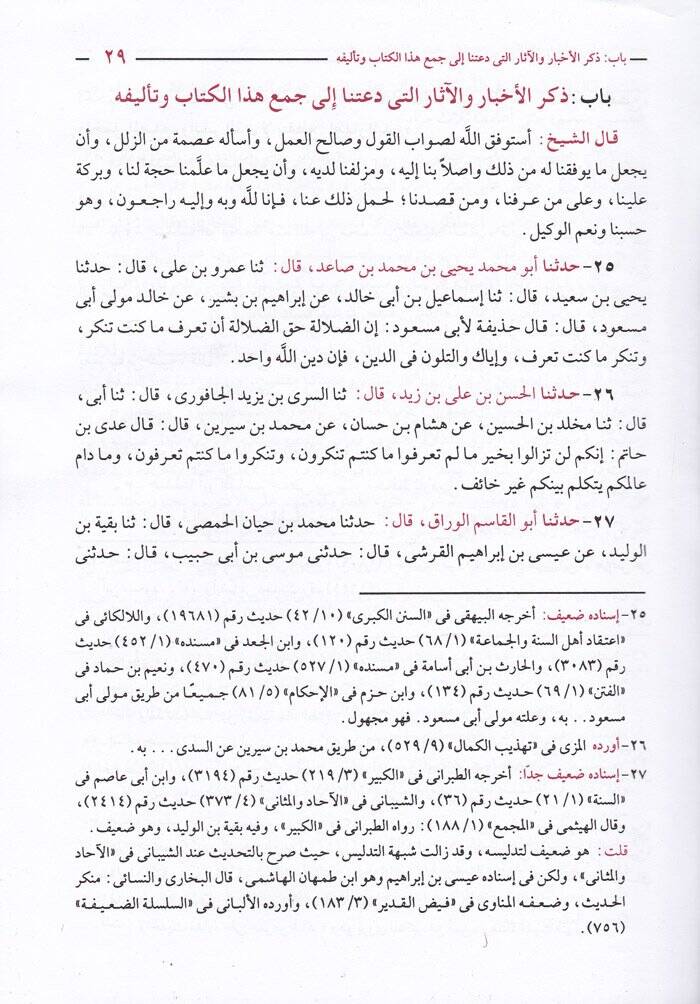 باب: ذكر الأخبار والآثار التى دعتنا إلى جمع هذا الكتاب وتأليفه ٢٩
باب: ذكر الأخبار والآثار التى دعتنا إلى جمع هذا الكتاب وتأليفه
قال الشيخ: أستوفق اللَّه لصواب القول وصالح العمل، وأسأله عصمة من الزلل، وأن
يجعل ما يوفقنا له من ذلك واصلاً بنا إليه، ومزلفنا لديه، وأن يجعل ما علَّمنا حجة لنا، وبركة
علينا، وعلى من عرفنا، ومن قصدنا؛ لحمل ذلك عنا، فإنا للَّه وبه وإليه راجعون، وهو
حسبنا ونعم الوكيل.
٢٥- حدثنا أبو محمد يحيى بن محمد بن صاعد، قال: ثنا عمرو بن على، قال: حدثنا
يحيى بن سعيد، قال: ثنا إسماعيل بن أبى خالد، عن إبراهيم بن بشير، عن خالد مولى أبى
مسعود، قال: قال حذيفة لأبى مسعود: إن الضلالة حق الضلالة أن تعرف ما كنت تنكر،
وتنكر ما كنت تعرف، وإياك والتلون فى الدين، فإن دين اللَّه واحد.
٢٦- حدثنا الحسن بن على بن زيد، قال: ثنا السرى بن يزيد الجافورى، قال: ثنا أبى،
قال: ثنا مخلد بن الحسين، عن هشام بن حسان، عن محمد بن سيرين، قال: قال عدى بن
حاتم: إنكم لن تزالوا بخير ما لم تعرفوا ما كنتم تنكرون، وتنكروا ما كنتم تعرفون، وما دام
عالمكم يتكلم بينكم غير خائف.
٢٧- حدثنا أبو القاسم الوراق، قال: حدثنا محمد بن حيان الحمصى، قال: ثنا بقية بن
الوليد، عن عيسى بن إبراهيم القرشى، قال: حدثنى موسى بن أبى حبيب، قال: حدثنى
٢٥- إسناده ضعيف: أخرجه البيهقى فى «السنن الكبرى» (١٠/ ٤٢) حديث رقم (١٩٦٨١)، واللالكائى فى
«اعتقاد أهل السنة والجماعة» (١/ ٦٨) حديث رقم (١٢٠)، وابن الجعد فى «مسنده» (١/ ٤٥٢) حديث
رقم (٣٠٨٣)، والحارث بن أبى أسامة فى «مسنده» (١/ ٥٢٧) حديث رقم (٤٧٠)، ونعيم بن حماد فى
«الفتن» (١/ ٦٩) حديث رقم (١٣٤)، وابن حزم فى «الإحكام» (٥/ ٨١) جميعًا من طريق مولى أبى
مسعود.. به، وعلته مولى أبى مسعود. فهو مجهول.
٢٦- أورده المزى فى «تهذيب الكمال» (٩/ ٥٢٩)، من طريق محمد بن سيرين عن السدى... به.
٢٧- إسناده ضعيف جدًا: أخرجه الطبرانى فى «الكبير» (٣/ ٢١٩) حديث رقم (٣١٩٤)، وابن أبى عاصم فى
«السنة» (١/ ٢١) حديث رقم (٣٦)، والشيبانى فى «الآحاد والمثانى» (٤/ ٣٧٣) حديث رقم (٢٤١٤)،
وقال الهيثمى فى «المجمع» (١/ ١٨٨): رواه الطبرانى فى «الكبير»، وفيه بقية بن الوليد، وهو ضعيف.
قلت: هو ضعيف لتدليسه، وقد زالت شبهة التدليس، حيث صرح بالتحديث عند الشيبانى فى «الآحاد
والمثانى»، ولكن فى إسناده عيسى بن إبراهيم وهو ابن طمهان الهاشمى، قال البخارى والنسائى: منكر
الحديث، وضعفه المناوى فى «فيض القدير» (٣/ ١٨٣)، وأورده الألبانى فى «السلسلة الضعيفة»
(٧٥٦).